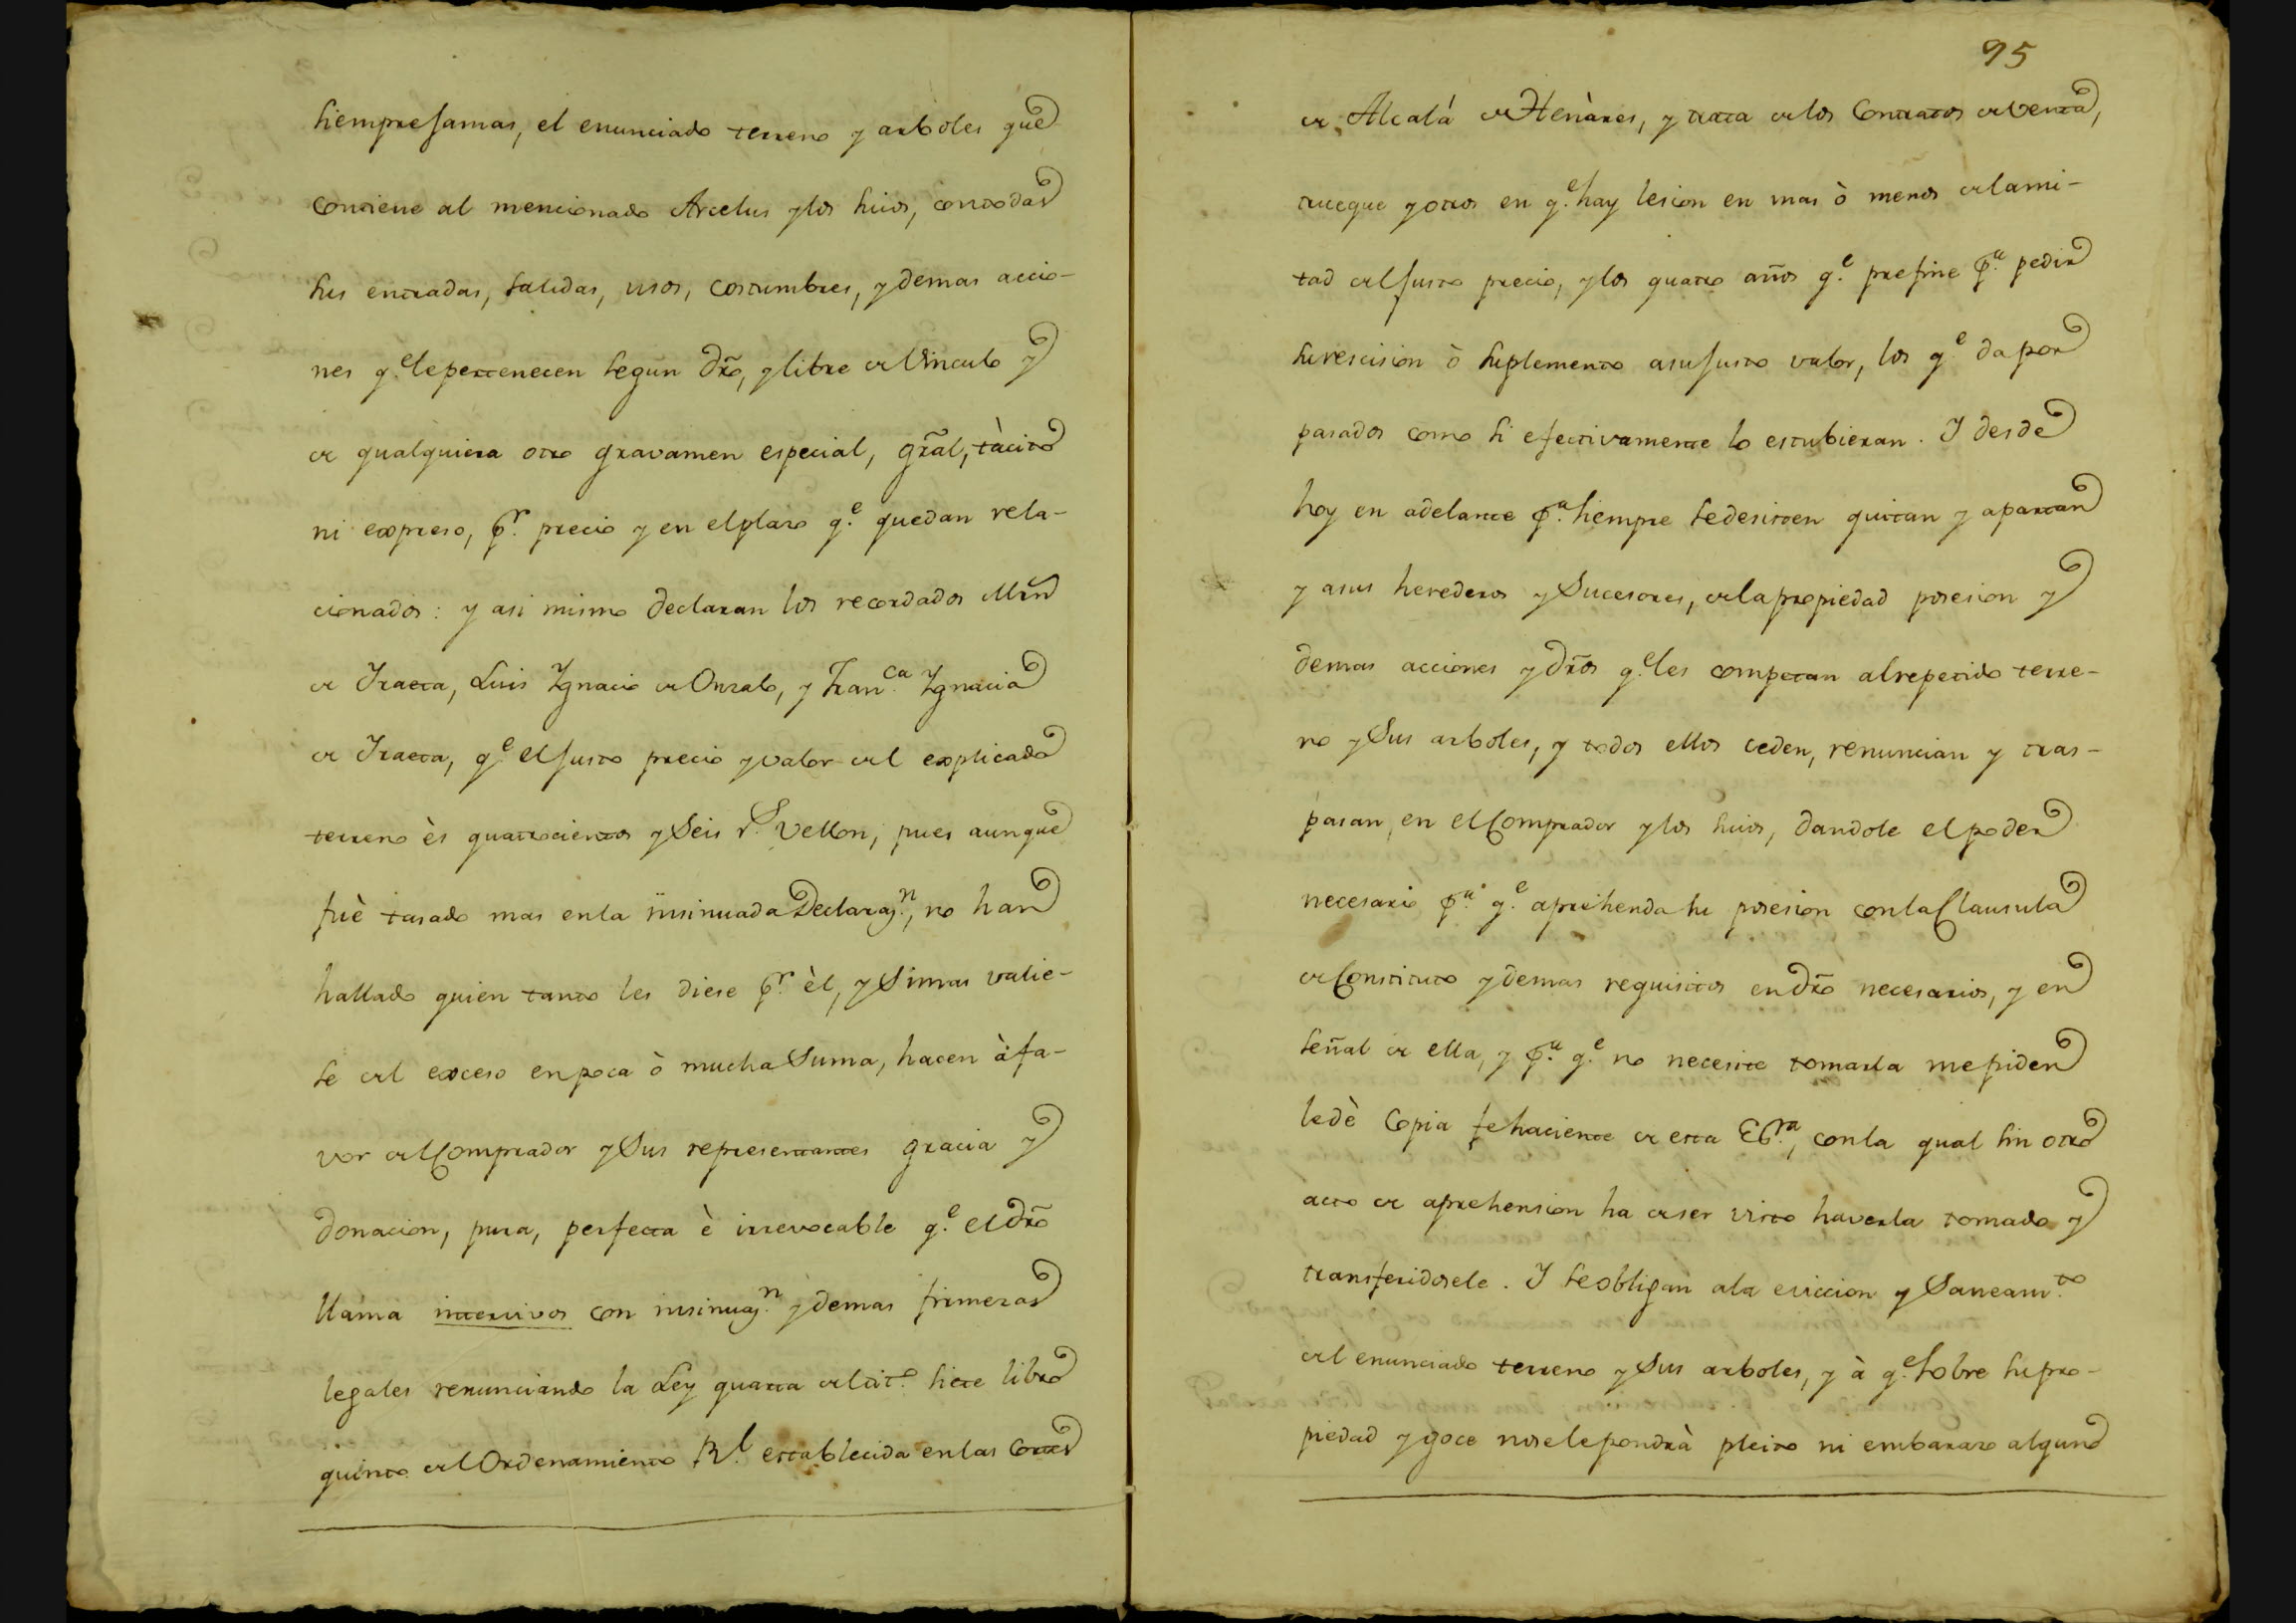 siempre jamas, el enunciado terreno y arboles que
contiene al mencionado Arcelus y los suios, con todas
sus entradas, salidas, usos, costumbres, y demas accio-
nes q.e le pertenecen segun dr̃o, y libre de Vinculo y
de qualquiera otro gravamen especial, gr̃al, tàcito
ni expreso, p.r precio y en el plazo q.e quedan rela-
cionados: y asi mismo declaran los recordados Mrn
de Iraeta, Luis Ignacio de Onzalo, y Fran.ca Ignacia
de Iraeta, q.e el justo precio y valor del explicado
terreno ès quatrocientos y Seis r.s Vellon, pues aunque
fuè tasado mas en la insinuada Declaraz.n, no han
hallado quien tanto les diese p.r èl, y Si mas valie-
se del exceso en poca ò mucha Suma, hacen à fa-
vor del Comprador y Sus representantes gracia y
donacion, pura, perfecta è irrevocable q.e el dr̃o
llama intervivos con insinuaz.n y demas firmezas
legales renunciando la Ley quarta del tit.o siete libro
quinto del Ordenamiento R.l establecida en las Cortes
95
de Alcalá de Henàres, y trata de los Contratos de Venta,
trueque y otros en q.e hay lesion en mas ò menos de la mi-
tad del justo precio, y los quatro años q.e prefine p.a pedir
su rescision ò suplemento a su justo valor, los q.e da por
pasados como si efectivamente lo estubieran. I desde
hoy en adelante p.a siempre se desisten quitan y apartan
y a sus herederos y Sucesores, de la propiedad posesion y
demas acciones y dr̃os q.e les competan al repetido terre-
no y Sus arboles, y todos ellos ceden, renuncian y tras-
pasan, en el Comprador y los suios, dandole el poder
necesario p.a q.e aprehenda su posesion con la Clausula
de Constituto y demas requisitos en dr̃o necesarios, y en
señal de ella, y p.a q.e no necesite tomarla me piden
le dè Copia fehaciente de esta Es.ra, con la qual sin otro
acto de aprehension ha de ser visto haverla tomado y
transferidosele. I se obligan a la eviccion y Saneam.to
del enunciado terreno y Sus arboles, y à q.e sobre su pro-
piedad y goce no se le pondrà pleito ni embarazo alguno